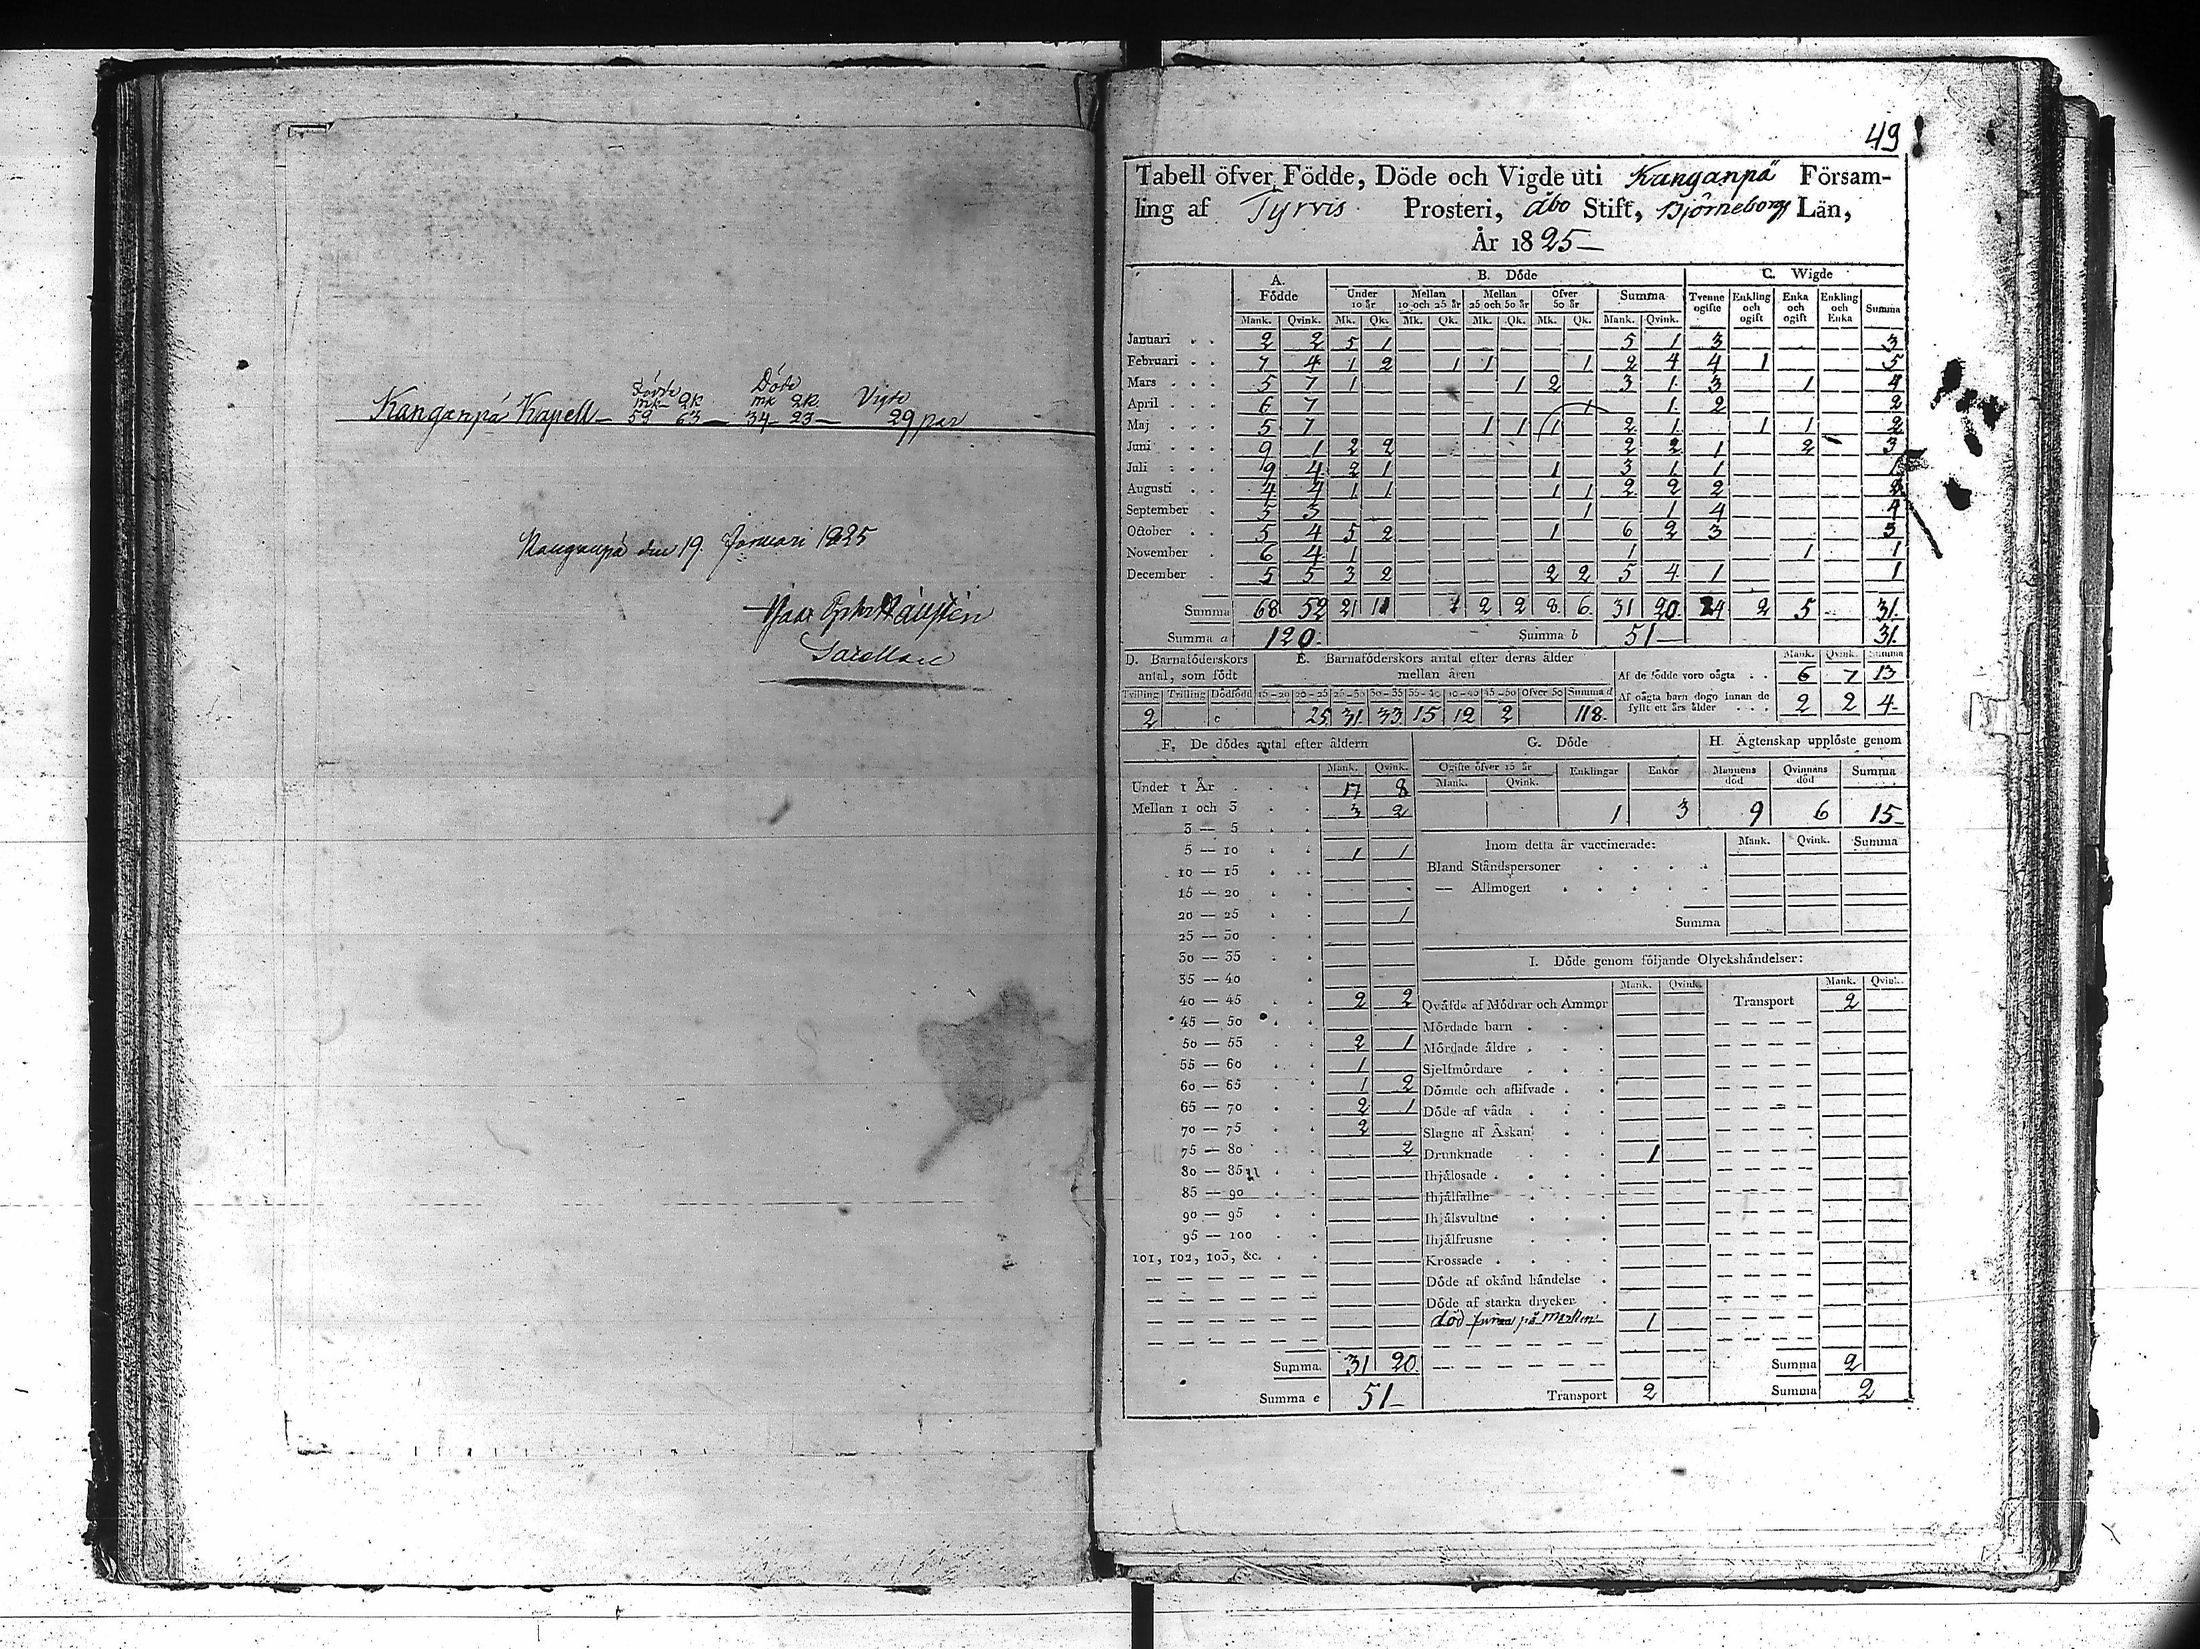 Födde Döde
mk Qk mk Qk Vigde
Kanganpä Kapell — 59 63 — 34 23 — 29 par
Kanganpä den 19 Januari 1825
49
Tabell öfver Födde, Döde och Vigde uti Kanganpä Försam-
ling af Tyrvis Prosteri, Åbo Stift, Björneborgs Län,
År 1825 —
A. Födde B. Döde C. Wigde
Under 10 år Mellan 10 och 25 år Mellan 25 och 50 år Öfver 50 år Summa Tvenne ogifte Enkling och ogift Enka och ogift Enkling och Enka Summa
Mank. Qvink. Mk. Qk. Mk. Qk. Mk. Qk. Mk. Qk. Mank. Qvink.
Januari 2 2 5 1 5 1 3 3
Februari 7 4 1 2 1 1 1 2 4 4 1 5
Mars 5 7 1 1 2 3 1 3 1 4
April 6 7 1 1 2 2
Maj 5 7 1 1 1 2 1 1 1 2
Juni 9 1 2 2 2 2 1 2 3
Juli 9 4 2 1 1 3 1 1 1
Augusti 4 4 1 1 1 1 2 2 2 2
September 5 3 1 1 4 4
October 5 4 5 2 1 6 2 3 3
November 6 4 1 1 1 1
December 5 5 3 2 2 2 5 4 1 1
Summa 68 52 21 11 1 2 2 8 6 31 20 24 2 5 31
Summa a 120 Summa b 51 — 31
D. Barnaföderskors antal, som födt
E. Barnaföderskors antal efter deras ålder mellan åren
Mank. Qvink. Summa
Af de födde voro oägta 6 7 13
Af oägta barn dogo innan de fyllt ett års ålder 2 2 4
Tvilling Trilling Dödfödd 15-20 20-25 25-30 30-35 35-40 40-45 45-50 Öfver 50 Summa d
2 c 25 31 33 15 12 2 118
F. De dödes antal efter åldern
Mank. Qvink.
Under 1 År 17 8
Mellan 1 och 3 3 2
3 — 5
5 — 10 1 1
10 — 15
15 — 20
20 — 25 1
25 — 30
30 — 35
35 — 40
40 — 45 2 2
45 — 50
50 — 55 2 1
55 — 60 1
60 — 65 1 2
65 — 70 2 1
70 — 75 2
75 — 80 2
80 — 85
85 — 90
90 — 95
95 — 100
101, 102, 103, &c.
Summa 31 20
Summa e 51 —
G. Döde
Ogifte öfver 15 år Enklingar Enkor
Mank. Qvink.
1 3
H. Ägtenskap upplöste genom
Mannens död Qvinnans död Summa
9 6 15
Inom detta år vaccinerade: Mank. Qvink. Summa
Bland Ståndspersoner
— Allmogen
Summa
I. Döde genom följande Olyckshändelser:
Mank. Qvink. Mank. Qvink.
Qväfde af Mödrar och Ammor Transport 2
Mördade barn
Mördade äldre
Sjelfmördare
Dömde och aflifvade
Döde af våda
Slagne af Åskan
Drunknade 1
Ihjälosade
Ihjälfallne
Ihjälsvultne
Ihjälfrusne
Krossade
Döde af okänd händelse
Döde af starka drycker
död på 1
Summa 2
Transport 2 Summa 2